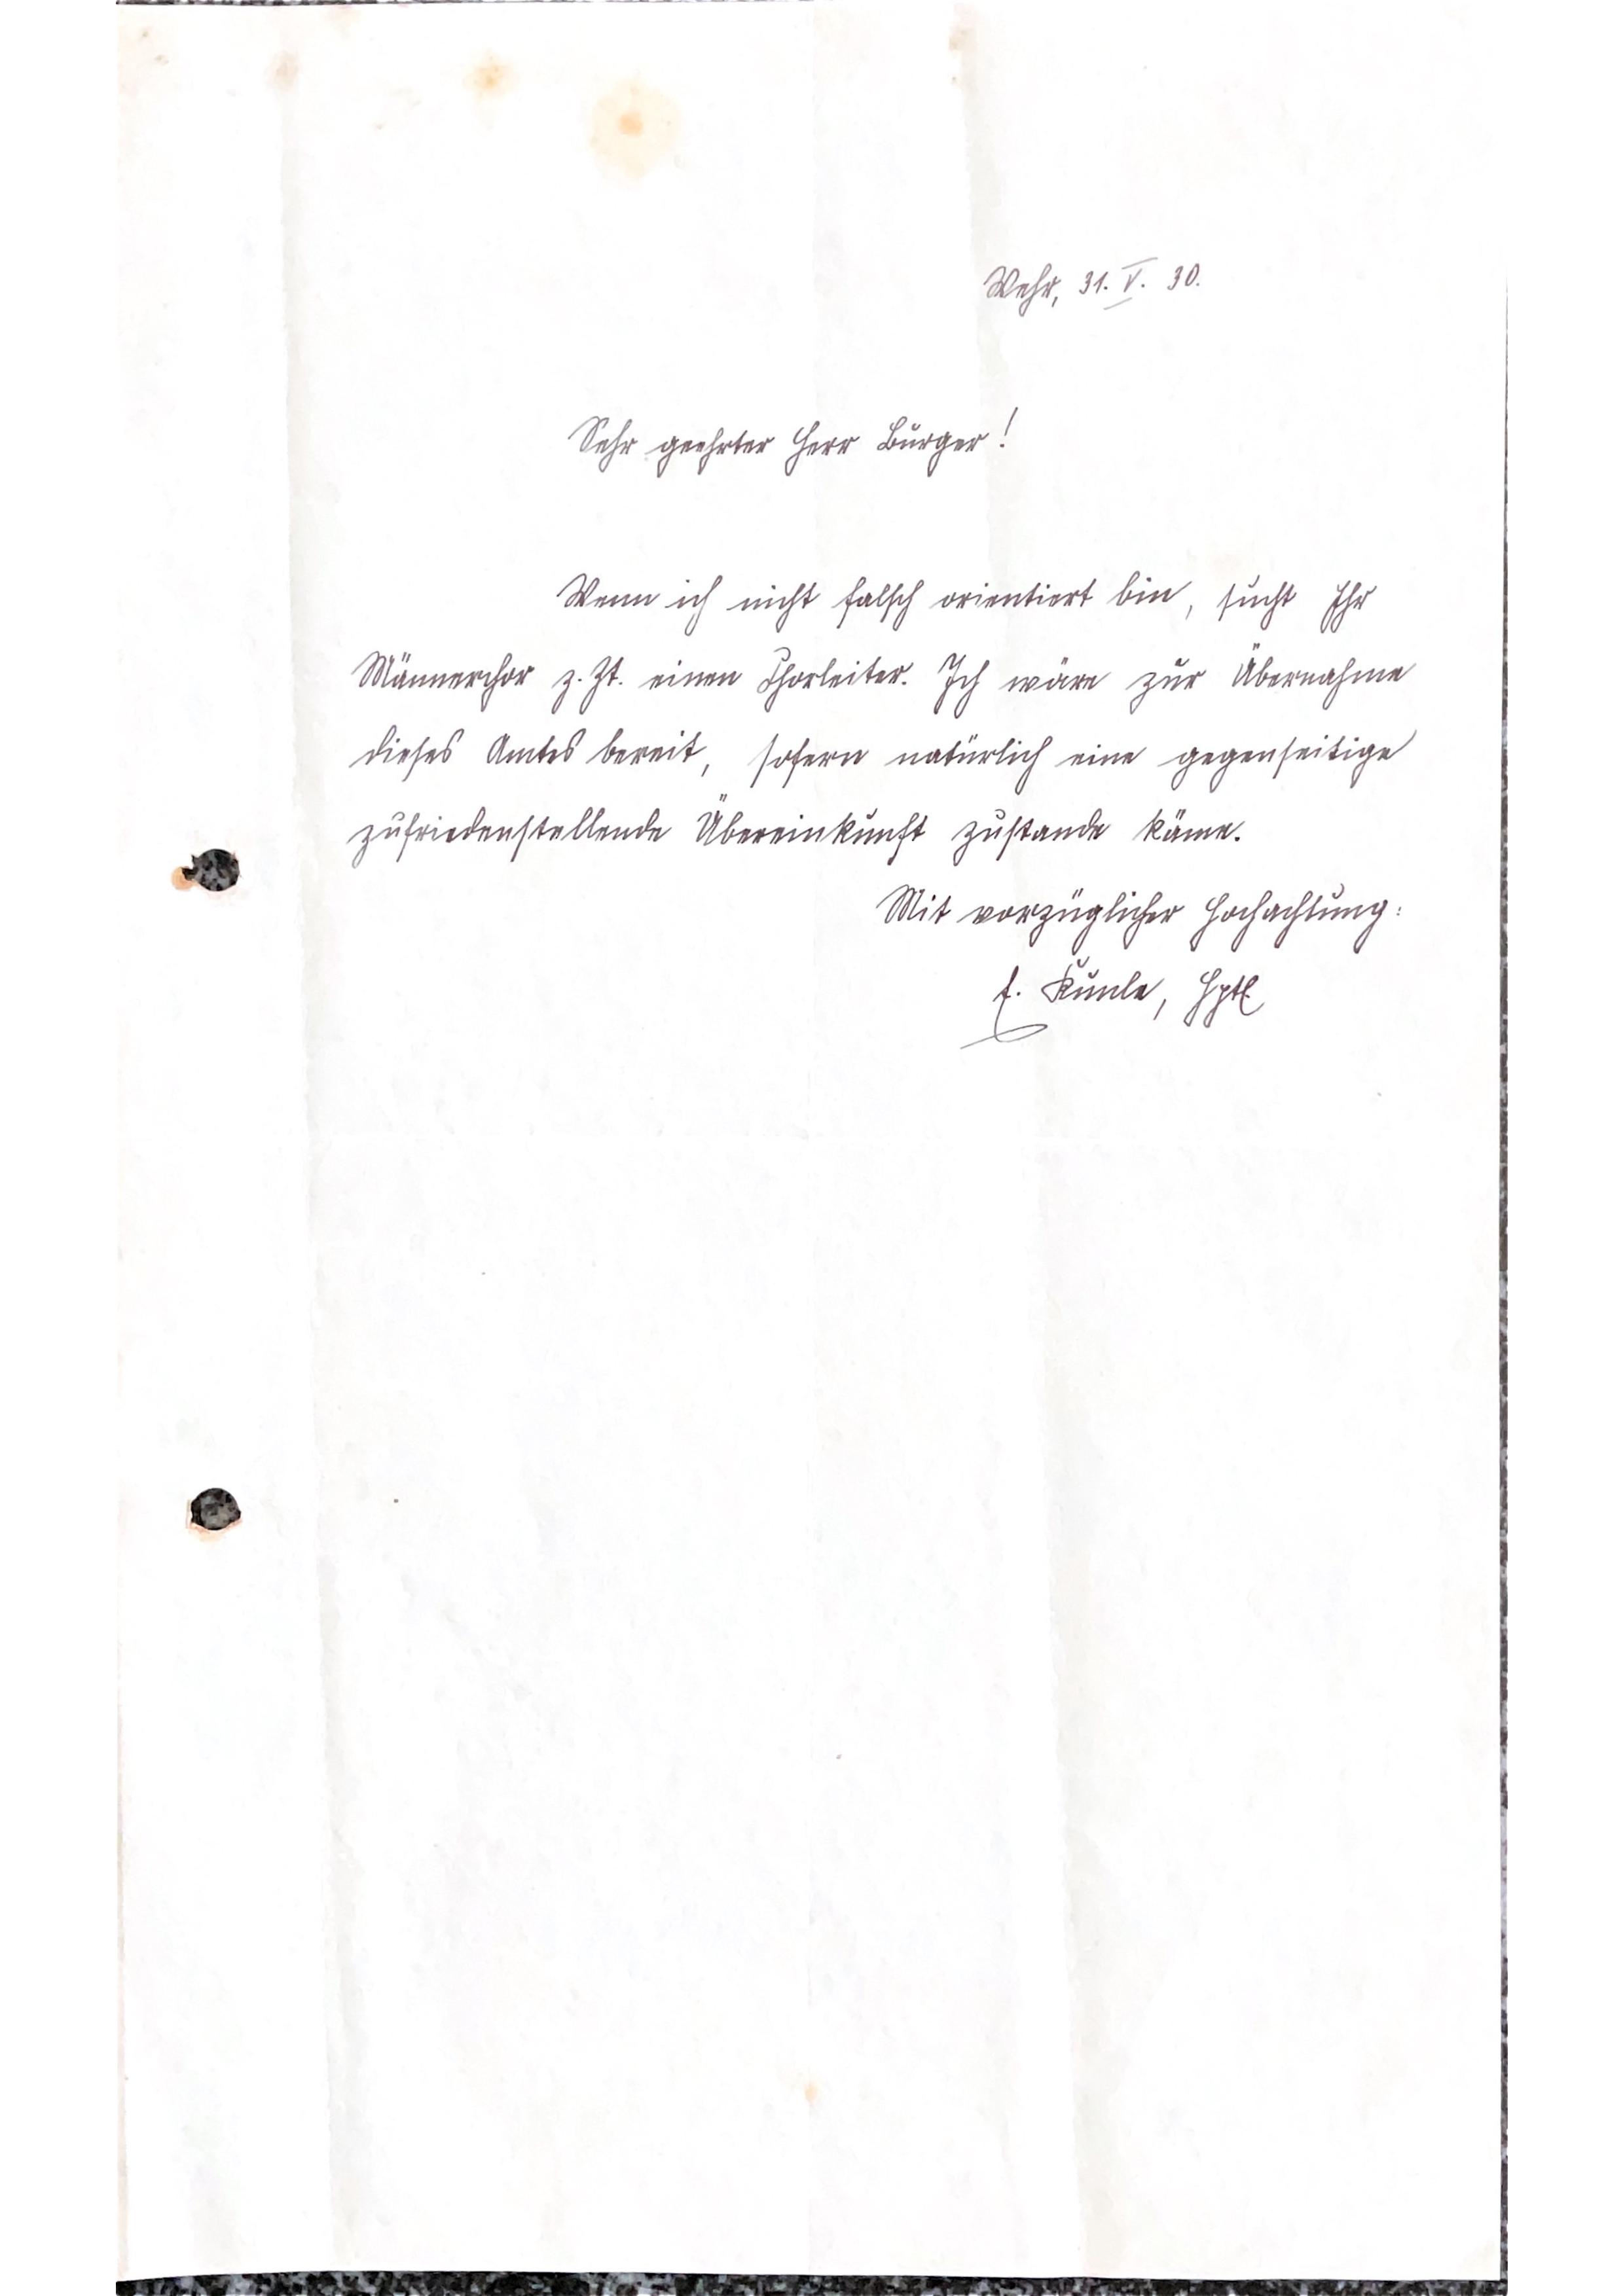 Wehr, 31. V. 30.
Sehr geehrter Herr Burger!
Wenn ich nicht falsch orientiert bin, sucht Ihr
Männerchor z. Zt. einen Chorleiter. Ich wäre zur Übernahme
dieses Amtes bereit, sofern natürlich eine gegenseitige
zufriedenstellende Übereinkunft zustande käme.
Mit vorzüglicher Hochachtung:
E. Kunle, Hptl.